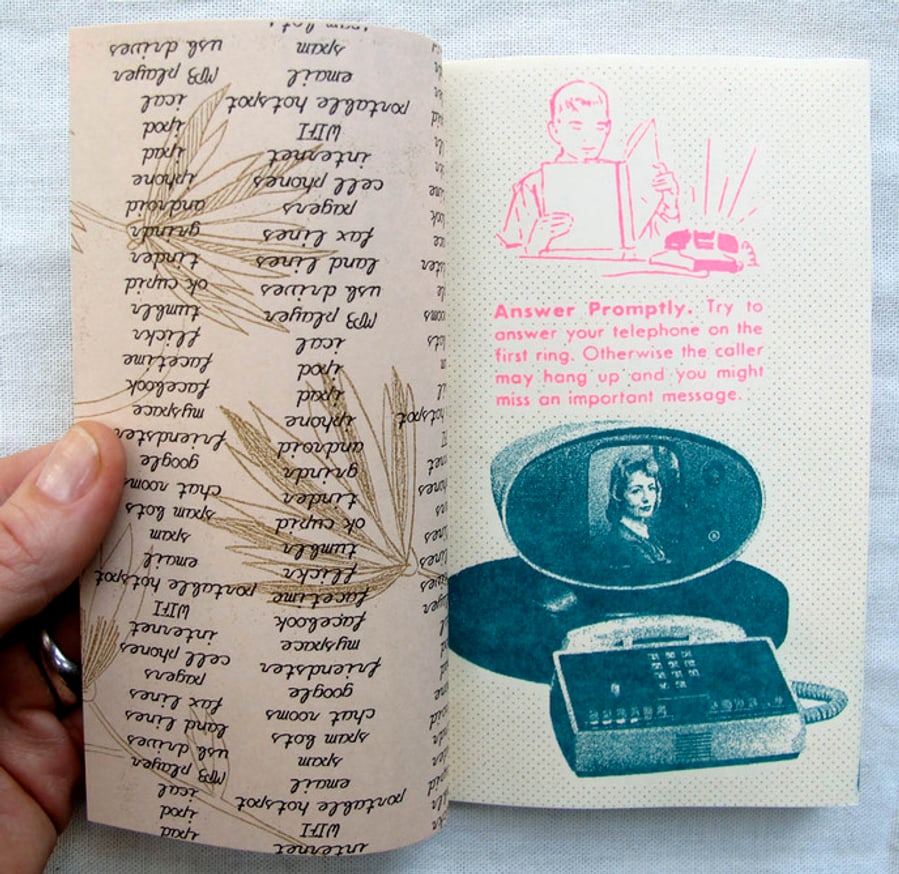 internet
WIFI
portable hotspot
email
spam
spam bots
chat rooms
google
friendster
myspace
facebook
facetime
flickr
tumblr
ok cupid
tinder
grindr
android
iphone
ipad
ipod
ical
MP3 player
usb drives
land lines
fax lines
pagers
cell phones
internet
WIFI
portable hotspot
email
spam
spam bots
ipad
ipod
ical
MP3 player
usb drives
land lines
fax lines
pagers
cell phones
internet
WIFI
portable hotspot
email
spam
spam bots
chat rooms
google
friendster
myspace
facebook
facetime
flickr
tumblr
ok cupid
tinder
grindr
android
iphone
ipad
ipod
ical
MP3 player
usb drives
Answer Promptly. Try to
answer your telephone on the
first ring. Otherwise the caller
may hang up and you might
miss an important message.